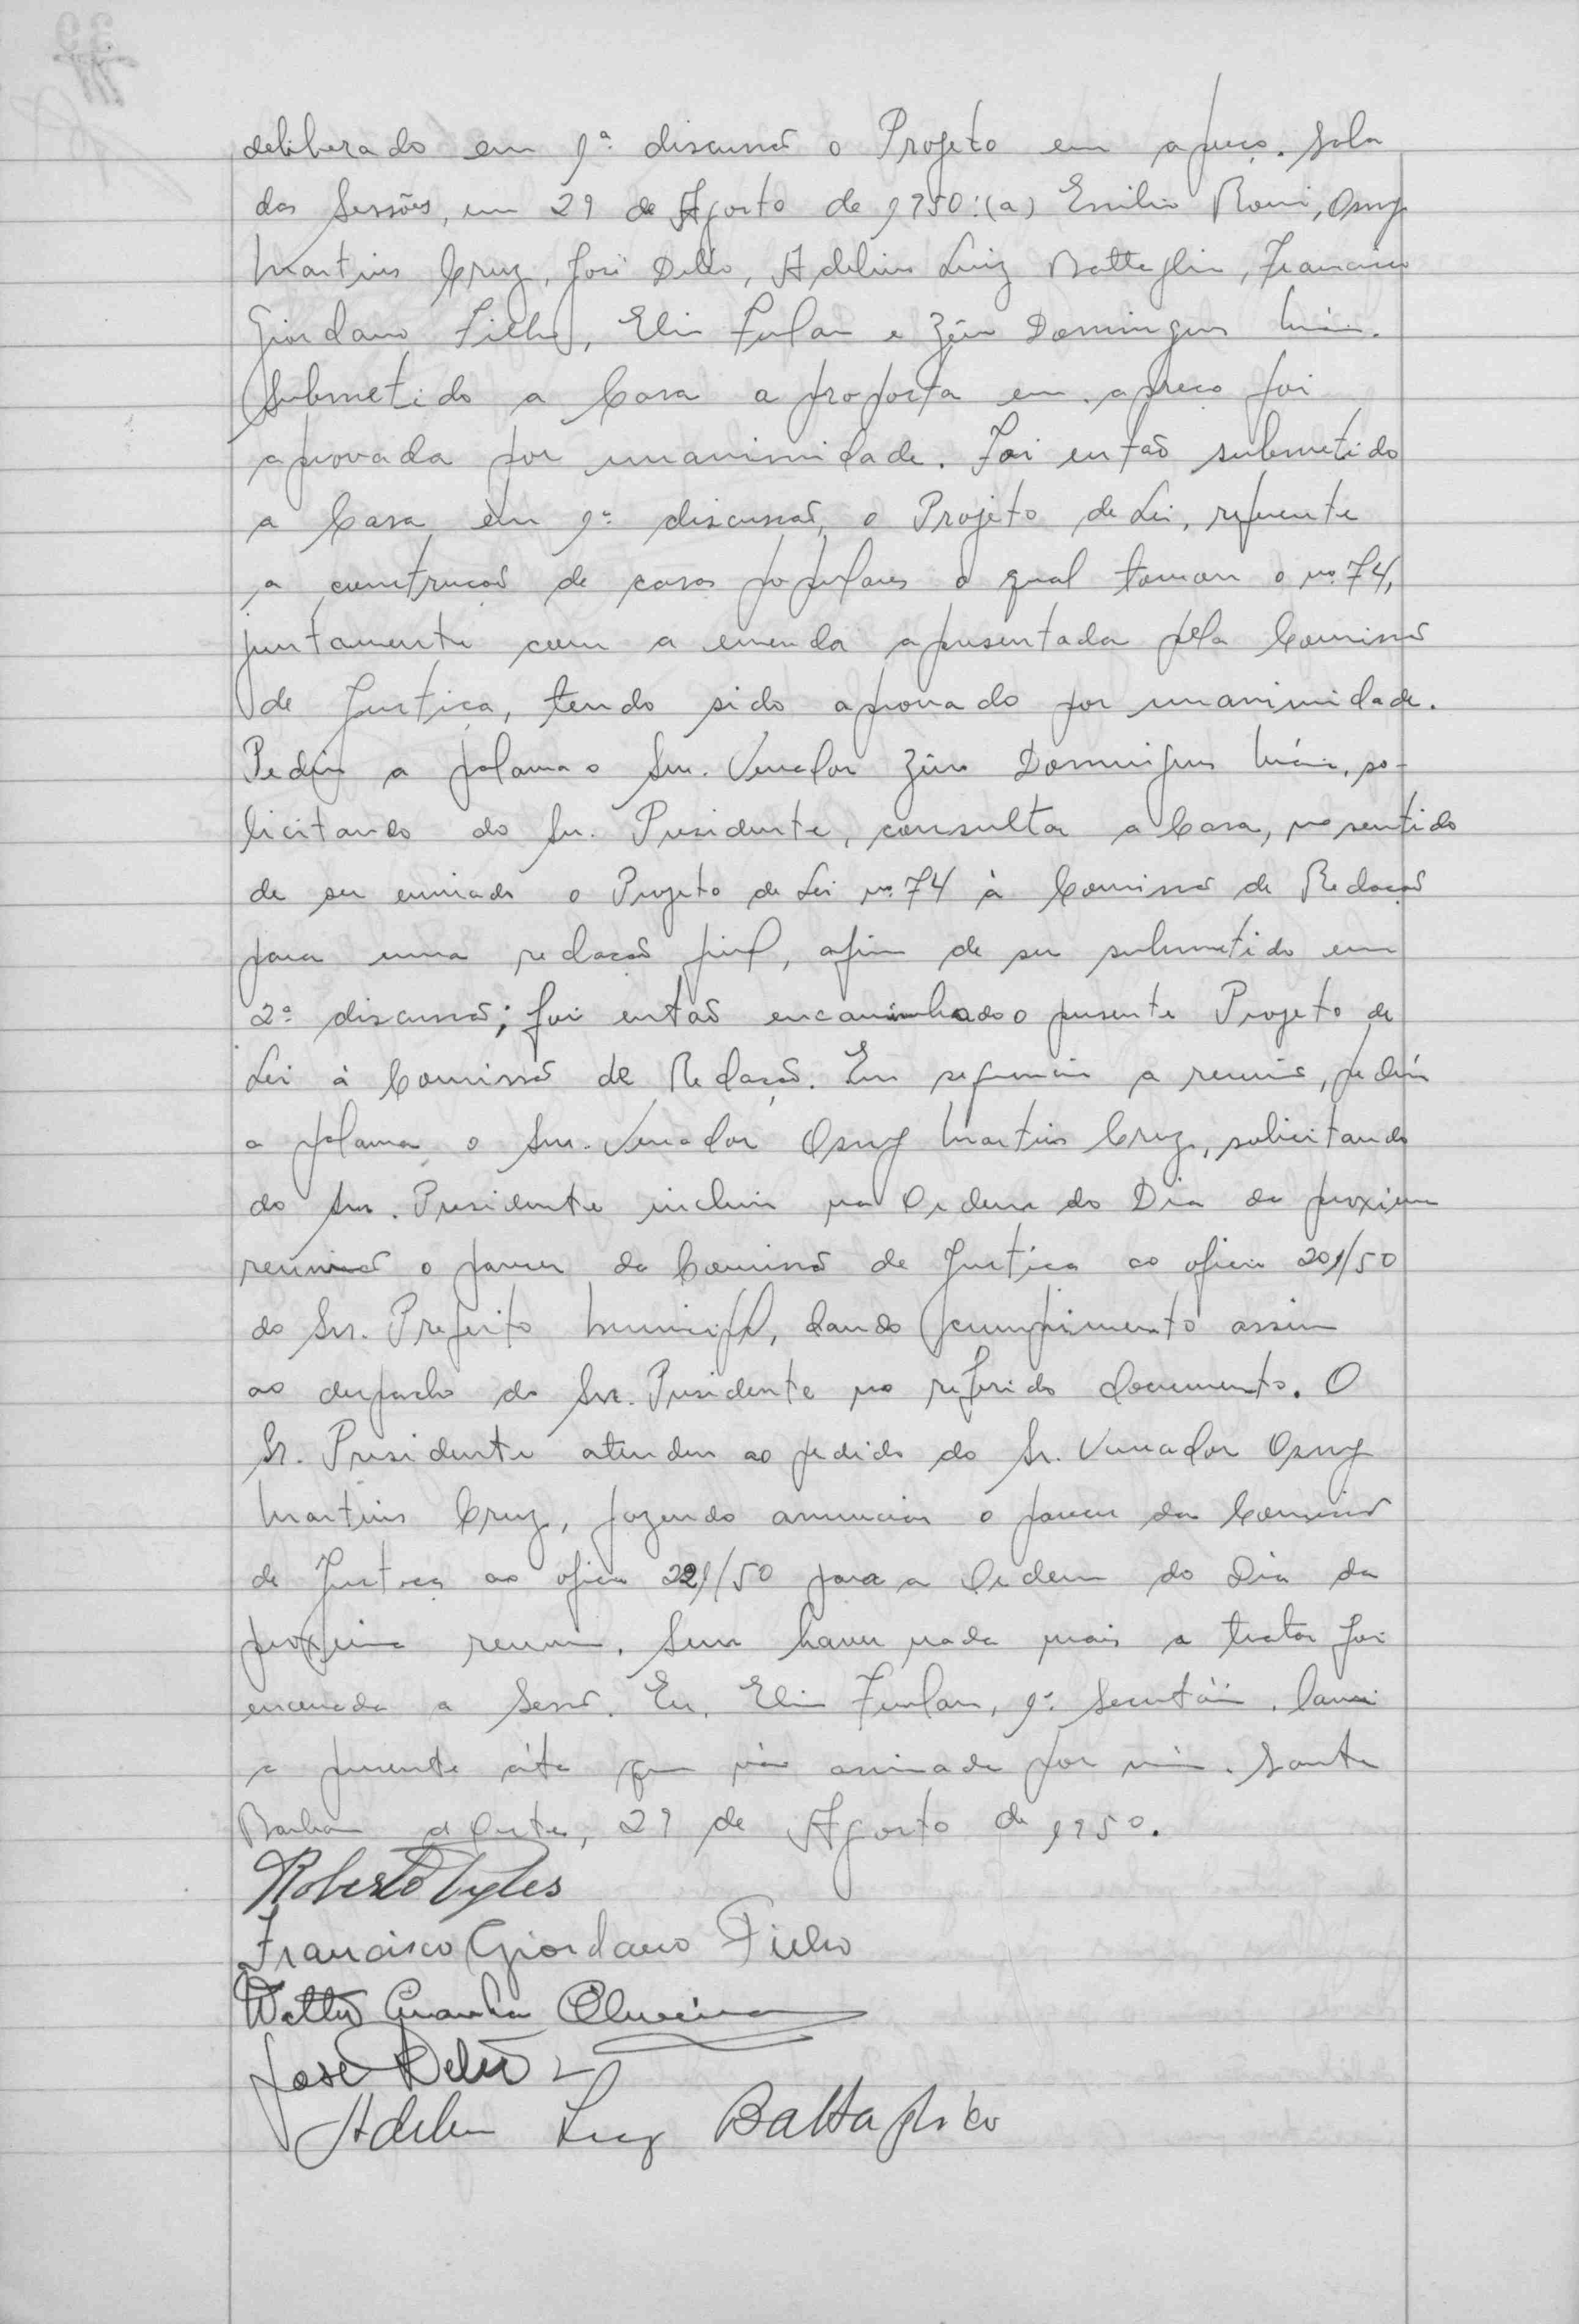 deliberado em 1ª discussão o Projeto em apreço. Sala
das Sessões, em 29 de Agosto de 1950: (a) Emilio Romi, Osny
Martins Cruz, José Deléo, Adelino Luiz Battaglia, Francisco
Giordano Filho, Elio Furlan e Zéno Domingues Máia.
Submetido a Casa a proposta em apreço foi
aprovada por unanimidade. Foi então submetido
a Casa em 1ª discussão, o Projeto de Lei, referente
a construção de casas populares o qual tomou o nº 74,
juntamente com a emenda apresentada pela Comissão
de Justiça, tendo sido aprovado por unanimidade.
Pediu a palavra o Snr. Vereador Zéno Domingues Máia, so-
licitando do Sr. Presidente, consultar a Casa, no sentido
de ser enviado o Projeto de Lei nº 74 à Comissão de Redação
para uma redação final, afim de ser submetido em
2ª discussão; foi então encaminhado o presente Projeto de
Lei à Comissão de Redação. Em sequencia a reunião, pediu
a palavra o Snr. Vereador Osny Martins Cruz, solicitando
do Snr. Presidente incluir na Ordem do Dia da proxima
reunião o parecer da Comissão de Justiça ao oficio 201/50
do Snr. Prefeito Municipal, dando cumprimento assim
ao despacho do Snr. Presidente no referido documento. O
Sr. Presidente atendeu ao pedido do Sr. Vereador Osny
Martins Cruz, fazendo anunciar o parecer da Comissão
de Justiça ao oficio 221/50 para a Ordem do Dia da
proxima reunião. Sem haver nada mais a tratar foi
encerrada a Sessão. Eu, Elio Furlan, 1º Secretário, lavrei
a presente áta que vão assinada por mim. Santa
Barbara d'Oeste, 29 de Agosto de 1950.
Roberto
Francisco Giordano Filho
Oliveira
José Deléo
Adelino Luiz Battaglia